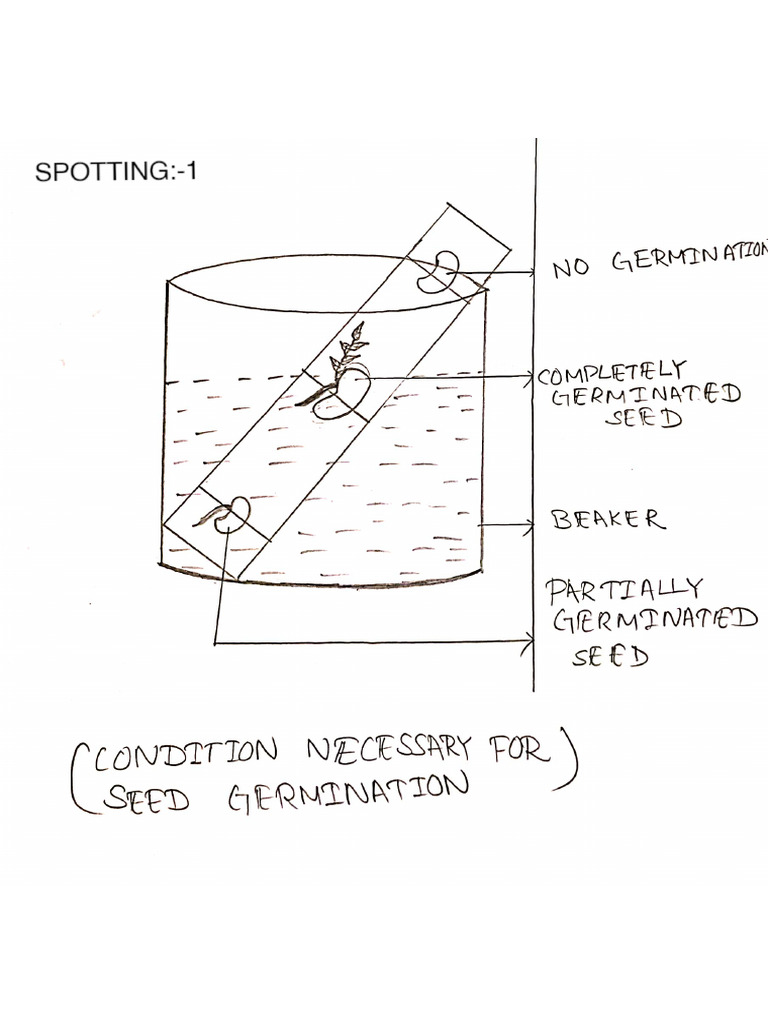 SPOTTING:-1
NO GERMINATION
COMPLETELY
GERMINATED
SEED
BEAKER
PARTIALLY
GERMINATED
SEED
(CONDITION NECESSARY FOR
SEED GERMINATION)